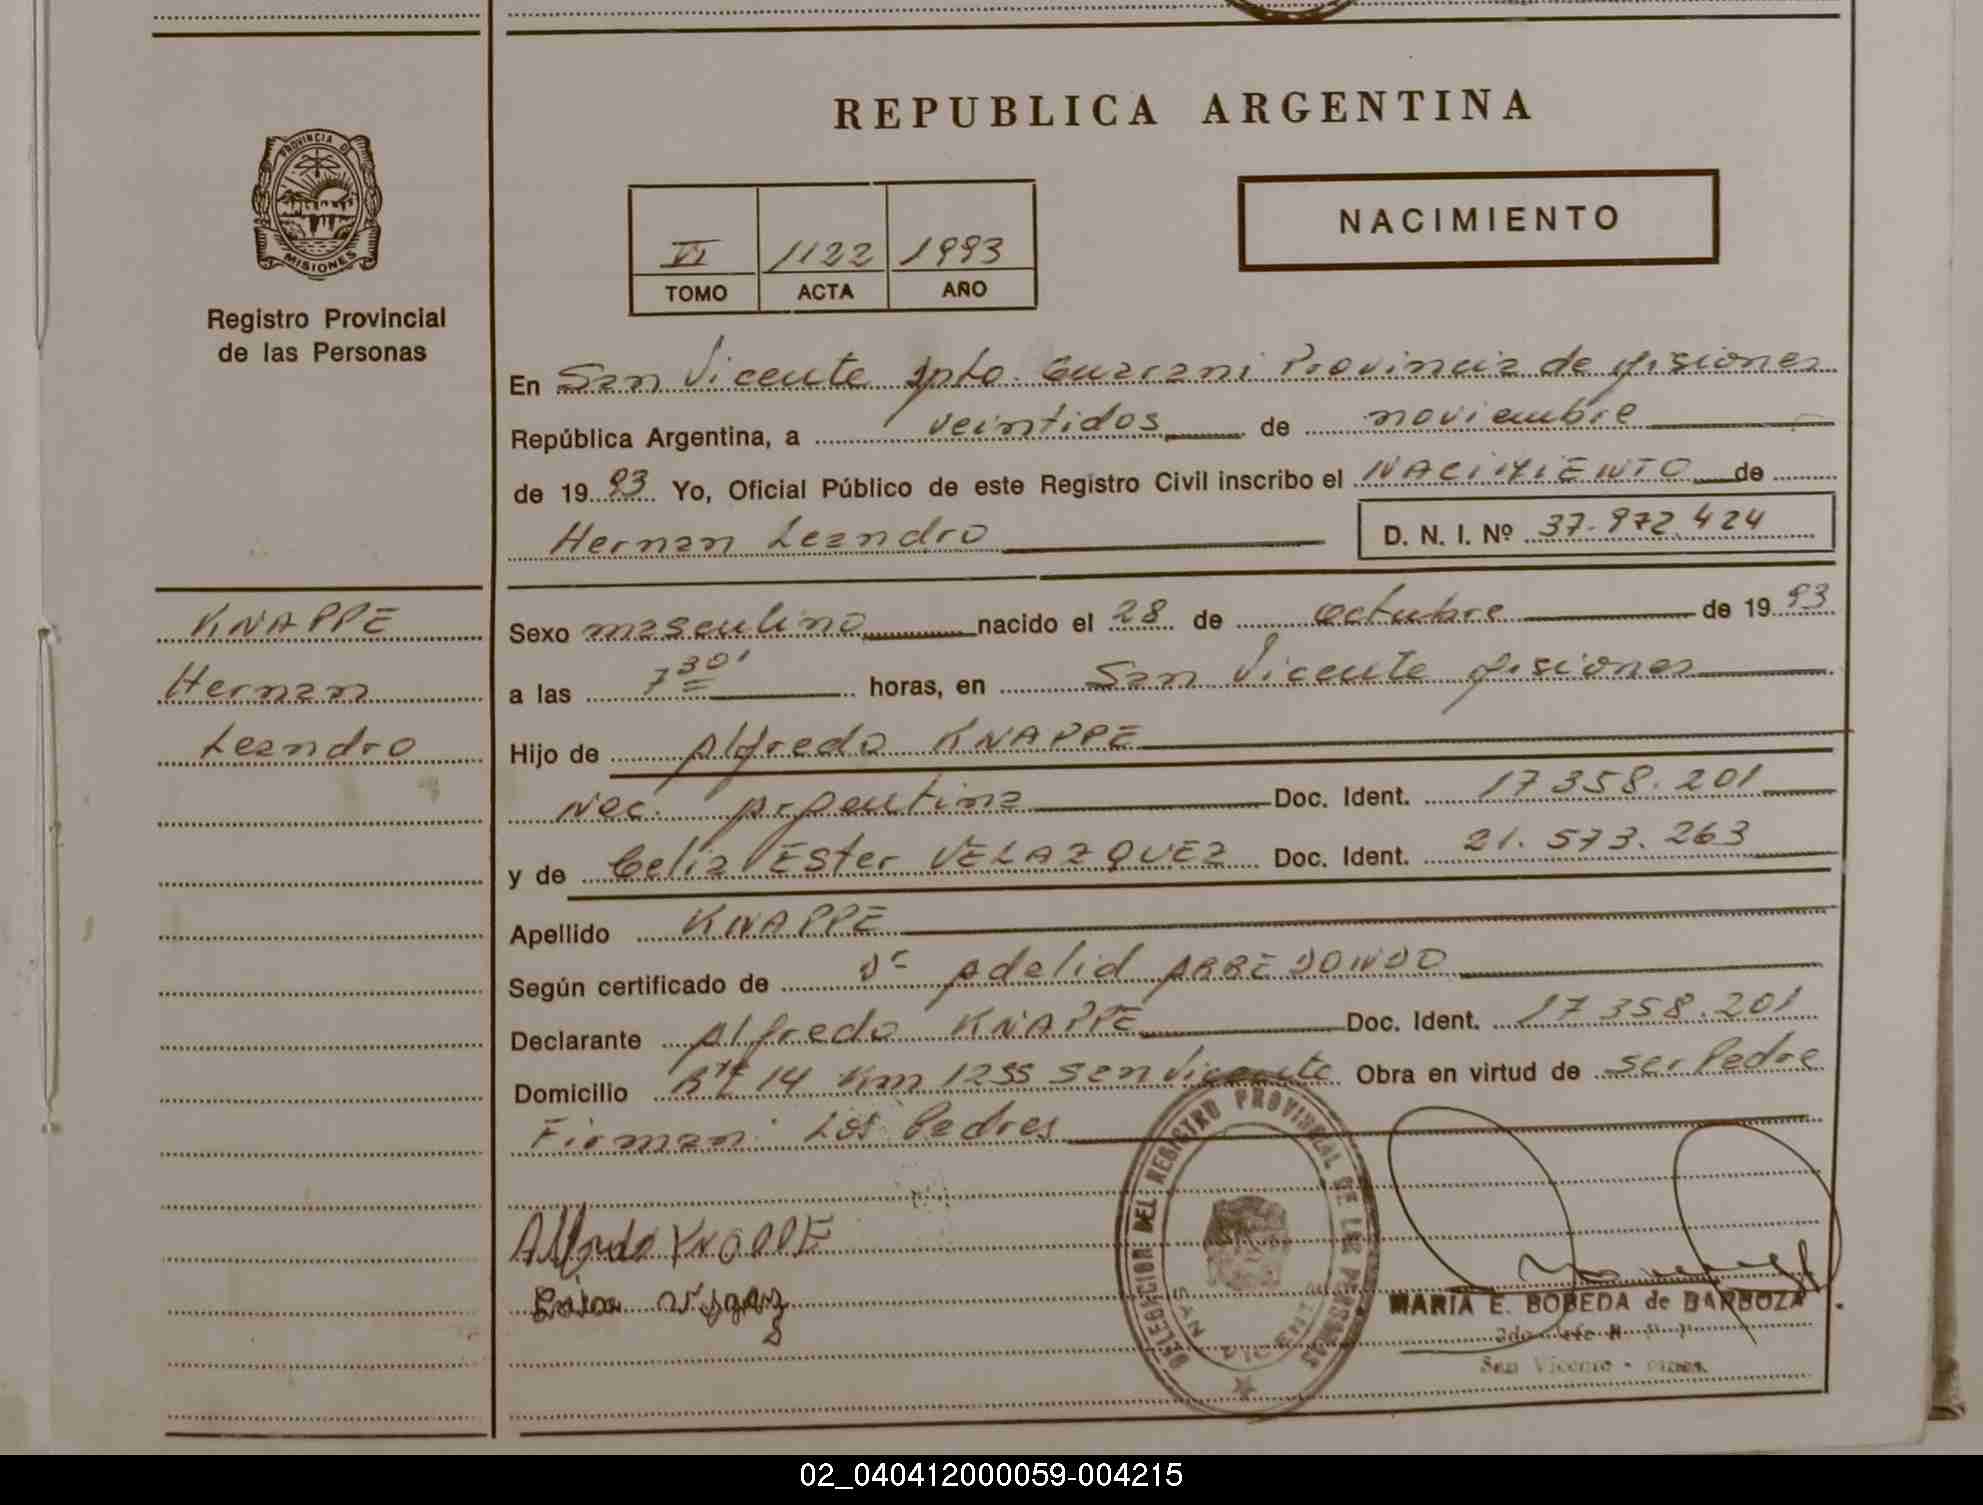 REPUBLICA ARGENTINA
PROVINCIA DE
MISIONES
Registro Provincial
de las Personas
VI 1122 1993
TOMO ACTA AÑO
NACIMIENTO
En San Vicente Dpto. Guarani Provincia de Misiones
República Argentina, a veintidos de noviembre
de 1993 Yo, Oficial Público de este Registro Civil inscribo el NACIMIENTO de
Hernan Leandro
D. N. I. Nº 37.972.424
KNAPPE
Hernan
Leandro
Sexo masculino nacido el 28 de octubre de 1993
a las 7 30' horas, en San Vicente Misiones
Hijo de Alfredo KNAPPE
Nac. Argentina Doc. Ident. 17 358.201
y de Celia Ester VELAZQUEZ Doc. Ident. 21.573.263
Apellido KNAPPE
Según certificado de Dr Adelid ARREDONDO
Declarante Alfredo KNAPPE Doc. Ident. 17 358.201
Domicilio Rta 14 Km 1255 San Vicente Obra en virtud de ser Padre
Firman: Los Padres
Alfredo KNAPPE
DELEGACION DEL REGISTRO PROVINCIAL DE LAS PERSONAS
SAN VICENTE
MARIA E. BOBEDA de BARBOZA
2do. Jefe R. P. P.
San Vicente - Mnes.
02_040412000059-004215